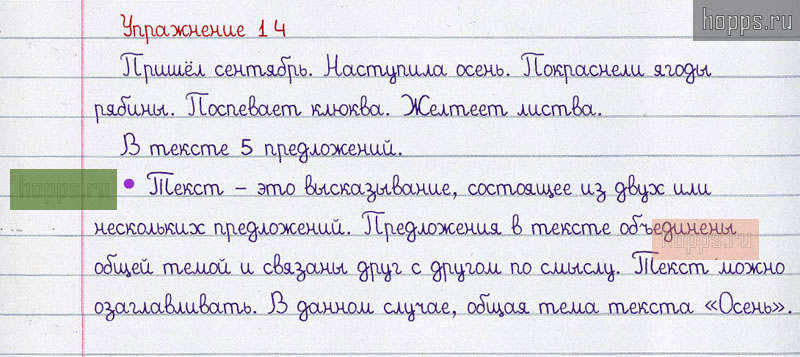 hopps.ru
Упражнение 14
Пришёл сентябрь. Наступила осень. Покраснели ягоды
рябины. Поспевает клюква. Желтеет листва.
В тексте 5 предложений.
hopps.ru
• Текст – это высказывание, состоящее из двух или
нескольких предложений. Предложения в тексте объединены
hopps.ru
общей темой и связаны друг с другом по смыслу. Текст можно
озаглавливать. В данном случае, общая тема текста «Осень».